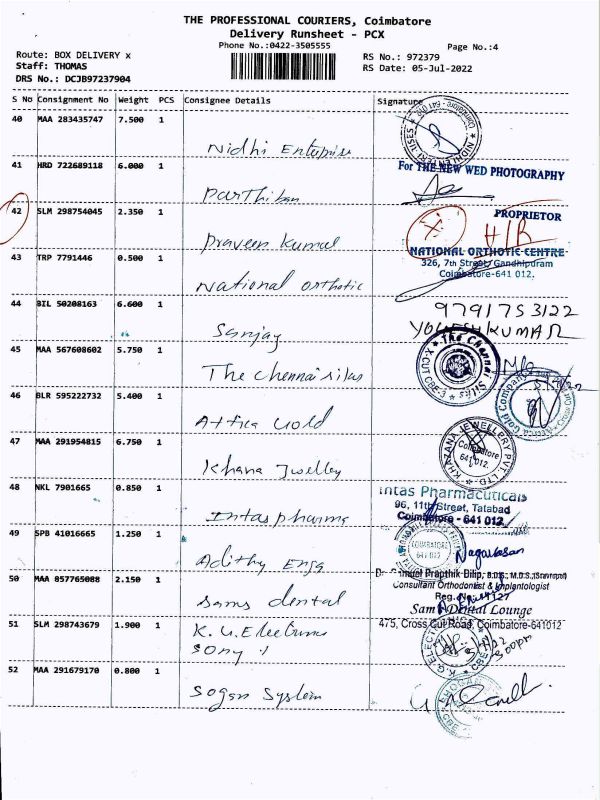 THE PROFESSIONAL COURIERS, Coimbatore
Delivery Runsheet - PCX
Phone No.:0422-3505555
Page No.:4
Route: BOX DELIVERY x
Staff: THOMAS
DRS No.: DCJB97237904
RS No.: 972379
RS Date: 05-Jul-2022
S No Consignment No Weight PCS Consignee Details Signature
40 MAA 283435747 7.500 1
Nidhi Enterprise
41 HRD 722689118 6.000 1
For THE NEW WED PHOTOGRAPHY
Parthiban
42 SLM 298754045 2.350 1
PROPRIETOR
Praveen Kumar
43 TRP 7791446 0.500 1
NATIONAL ORTHOTIC CENTRE
326, 7th Street, Gandhipuram
Coimbatore-641 012.
National orthotic
44 BIL 50208163 6.600 1
9791753122
YOGESH KUMAR
Sanjay
45 MAA 567608602 5.750 1
The Chennai
Silks
X-CUT CBE-3
The Chennai silks
46 BLR 595222732 5.400 1
Attica Gold
47 MAA 291954815 6.750 1
KHAZANA JEWELLERY PVT. LTD.
Coimbatore
641 012.
Khana Jwelley
48 NKL 7901665 0.850 1
Intas Pharmacuticals
96, 11th Street, Tatabad
Coimbatore - 641 012
Intas pharma
49 SPB 41016665 1.250 1
COIMBATORE
641 012
Nagarasan
Adithy Engg
50 MAA 857765088 2.150 1
Consultant Orthodontist & Implantologist
Sams Dental Lounge
475, Cross Cut Road, Coimbatore-641012
Sams dental
51 SLM 298743679 1.900 1
K.G. Electrums
Sony
52 MAA 291679170 0.800 1
Sogan System